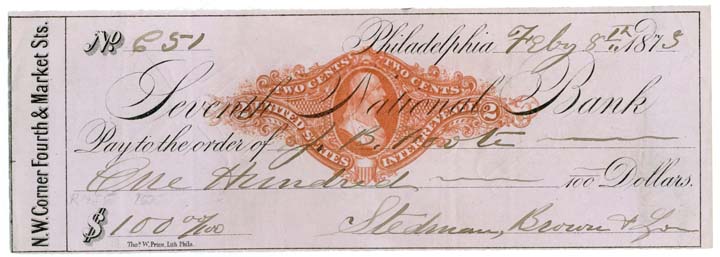 N.W. Corner Fourth & Market Sts.
No 651
Philadelphia Feby 8th 1873
Seventh National Bank
TWO CENTS TWO CENTS
UNITED STATES INTER. REVENUE
2
Pay to the order of J. B. Foote
One Hundred 100 Dollars.
$ 100 00/100
Stedman, Brown &
Thos. W. Price, Lith. Phila.